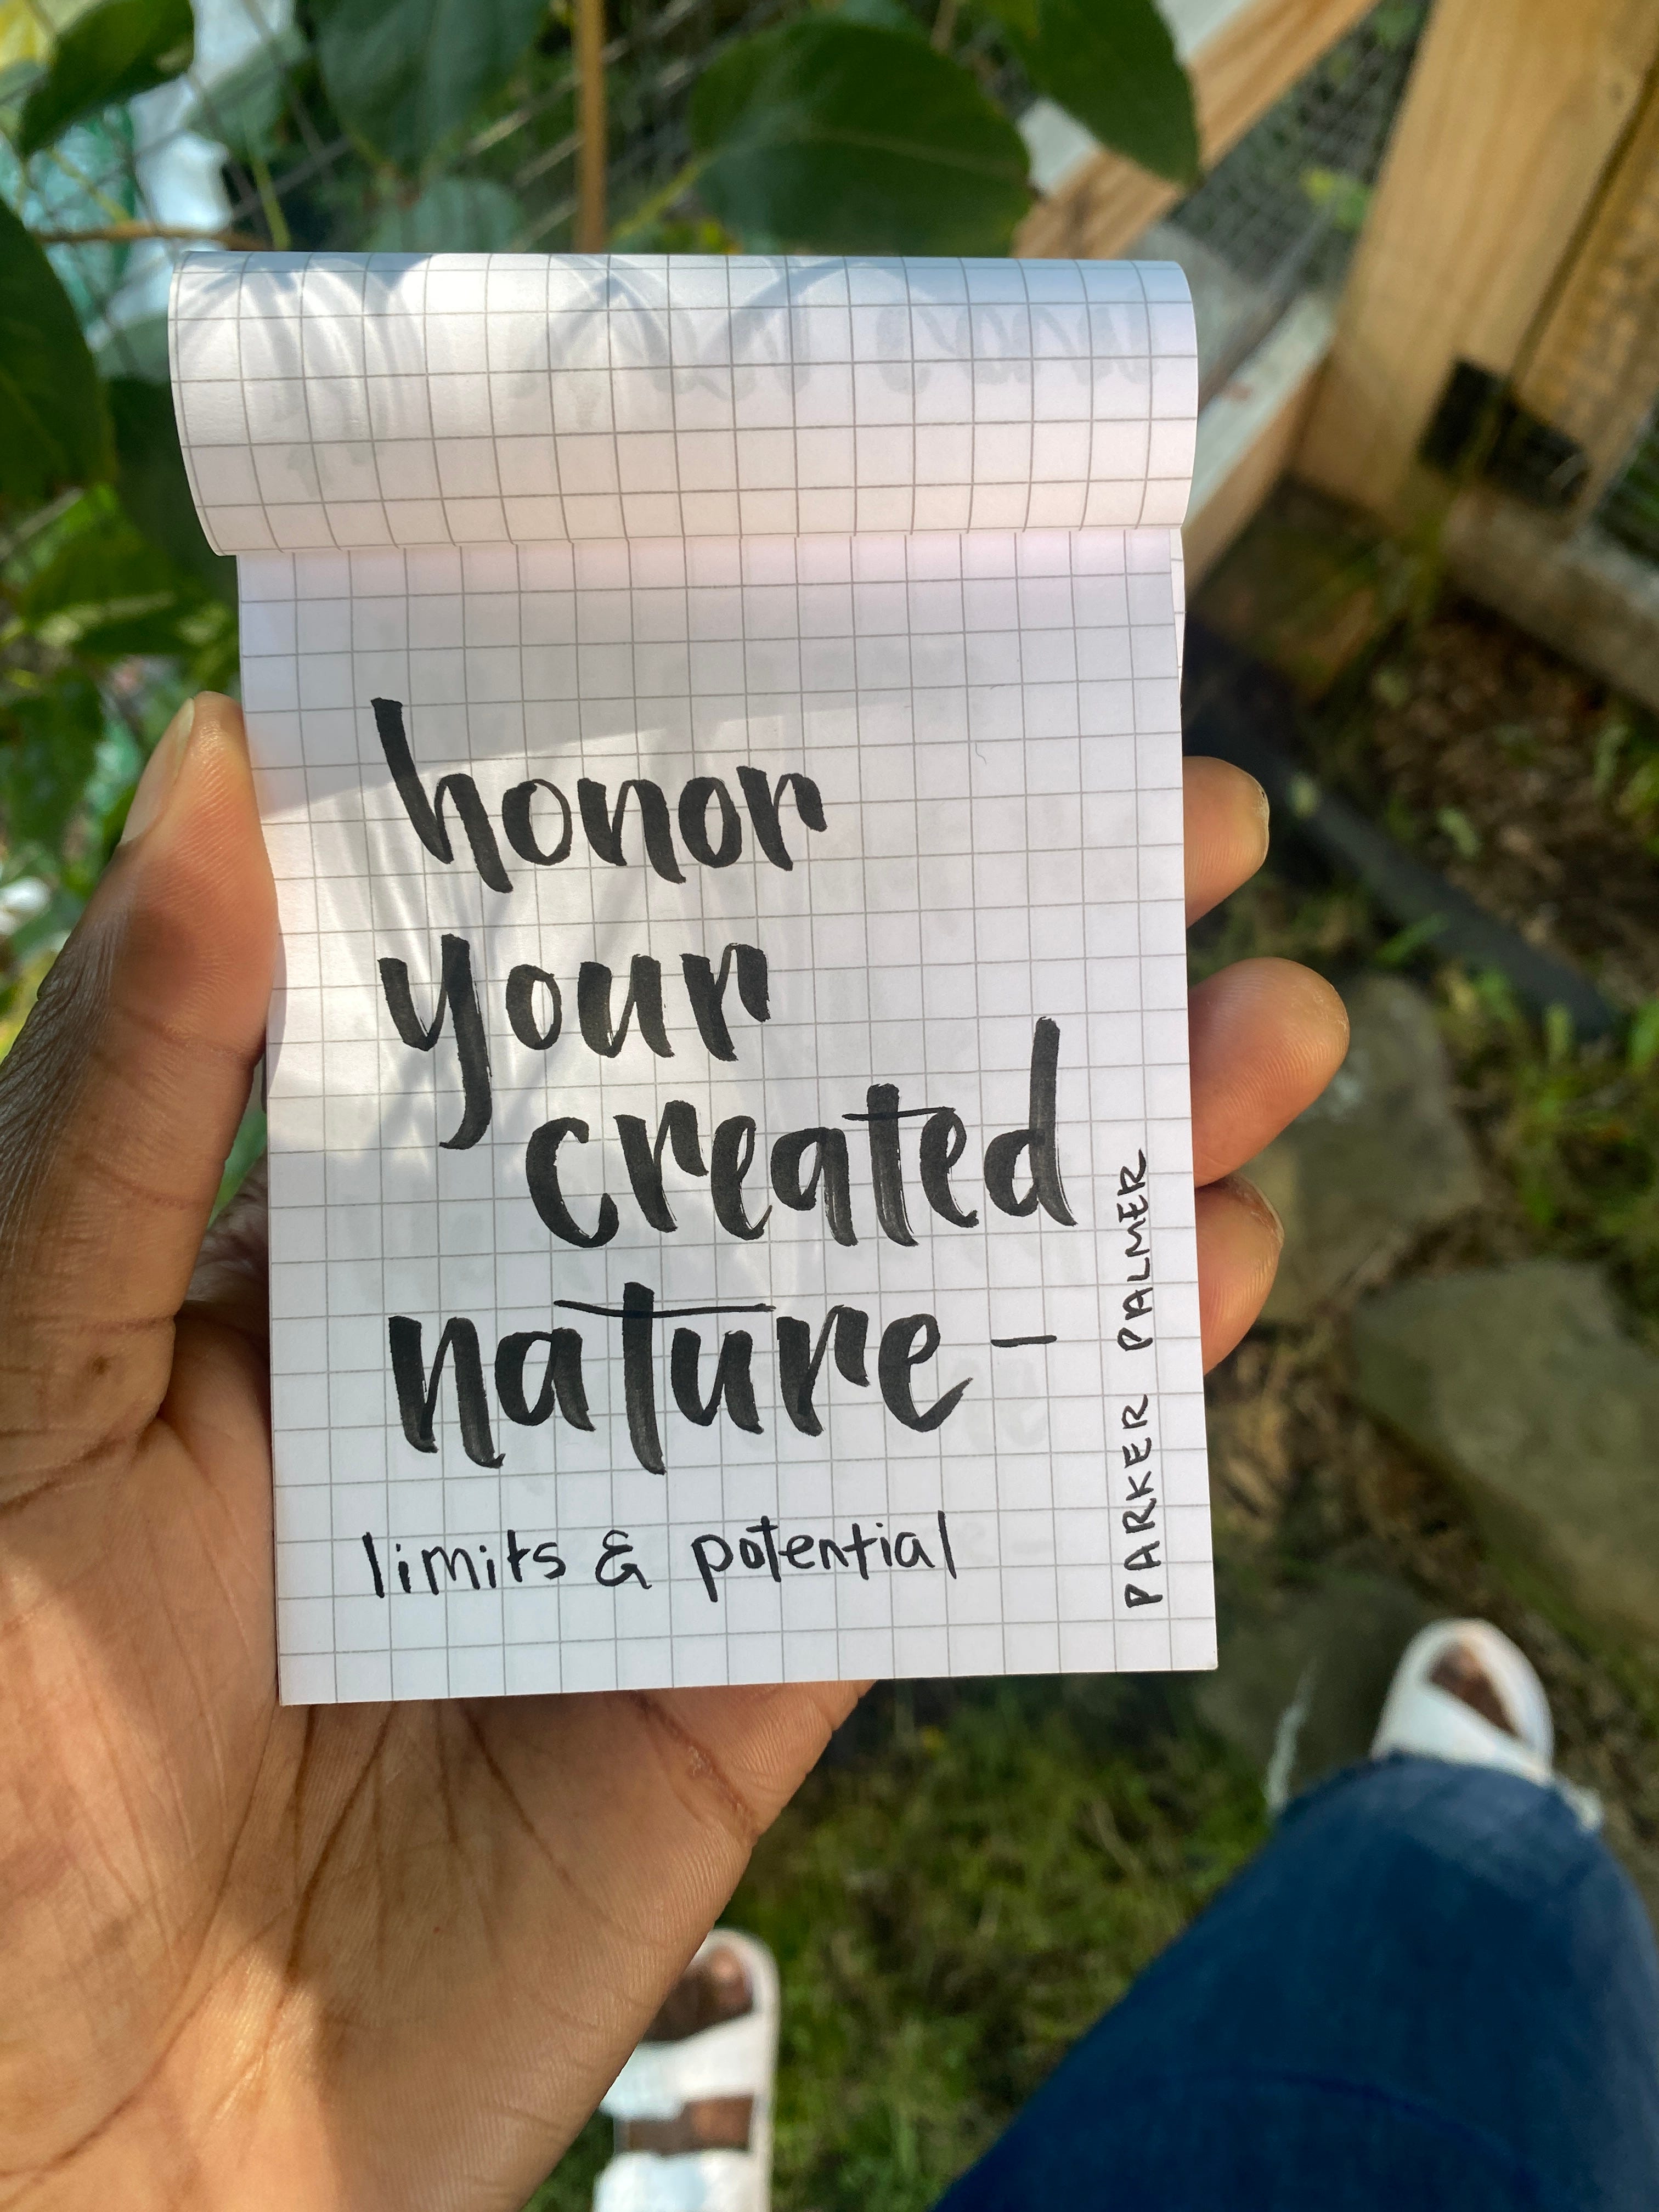 honor
your
created
nature –
limits & potential
PARKER PALMER